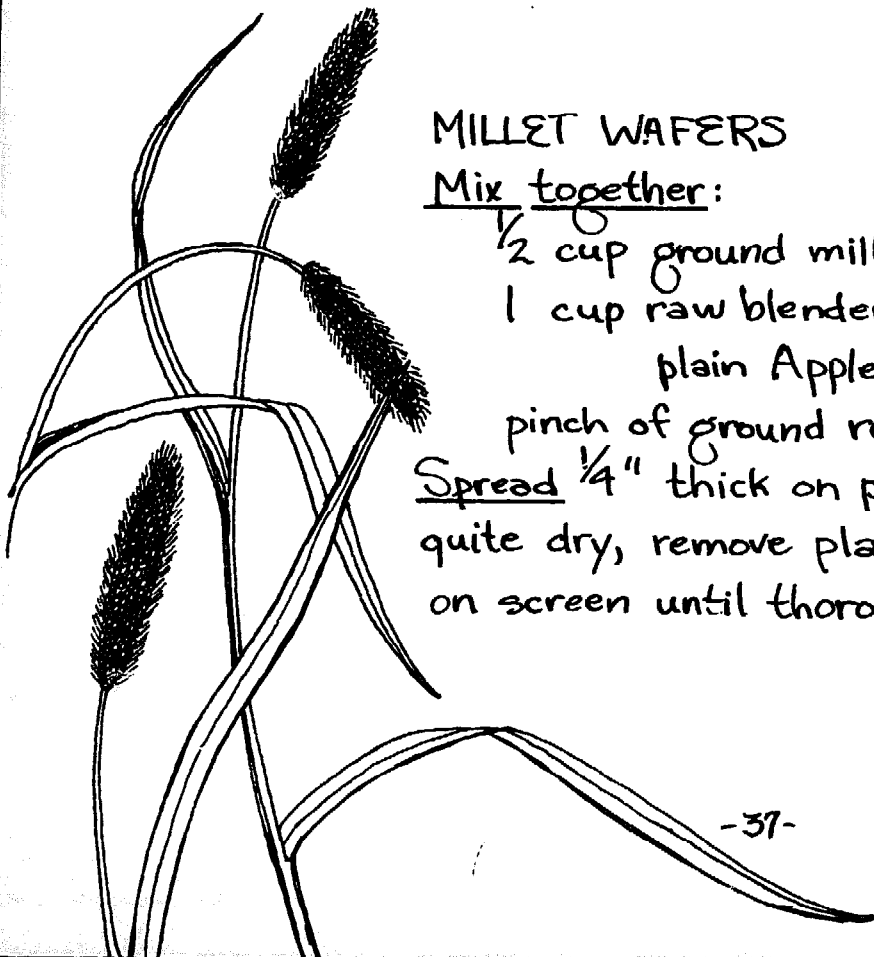 MILLET WAFERS
Mix together:
1/2 cup ground mill
1 cup raw blende
plain Apple
pinch of ground n
Spread 1/4" thick on p
quite dry, remove pla
on screen until thoro
-37-